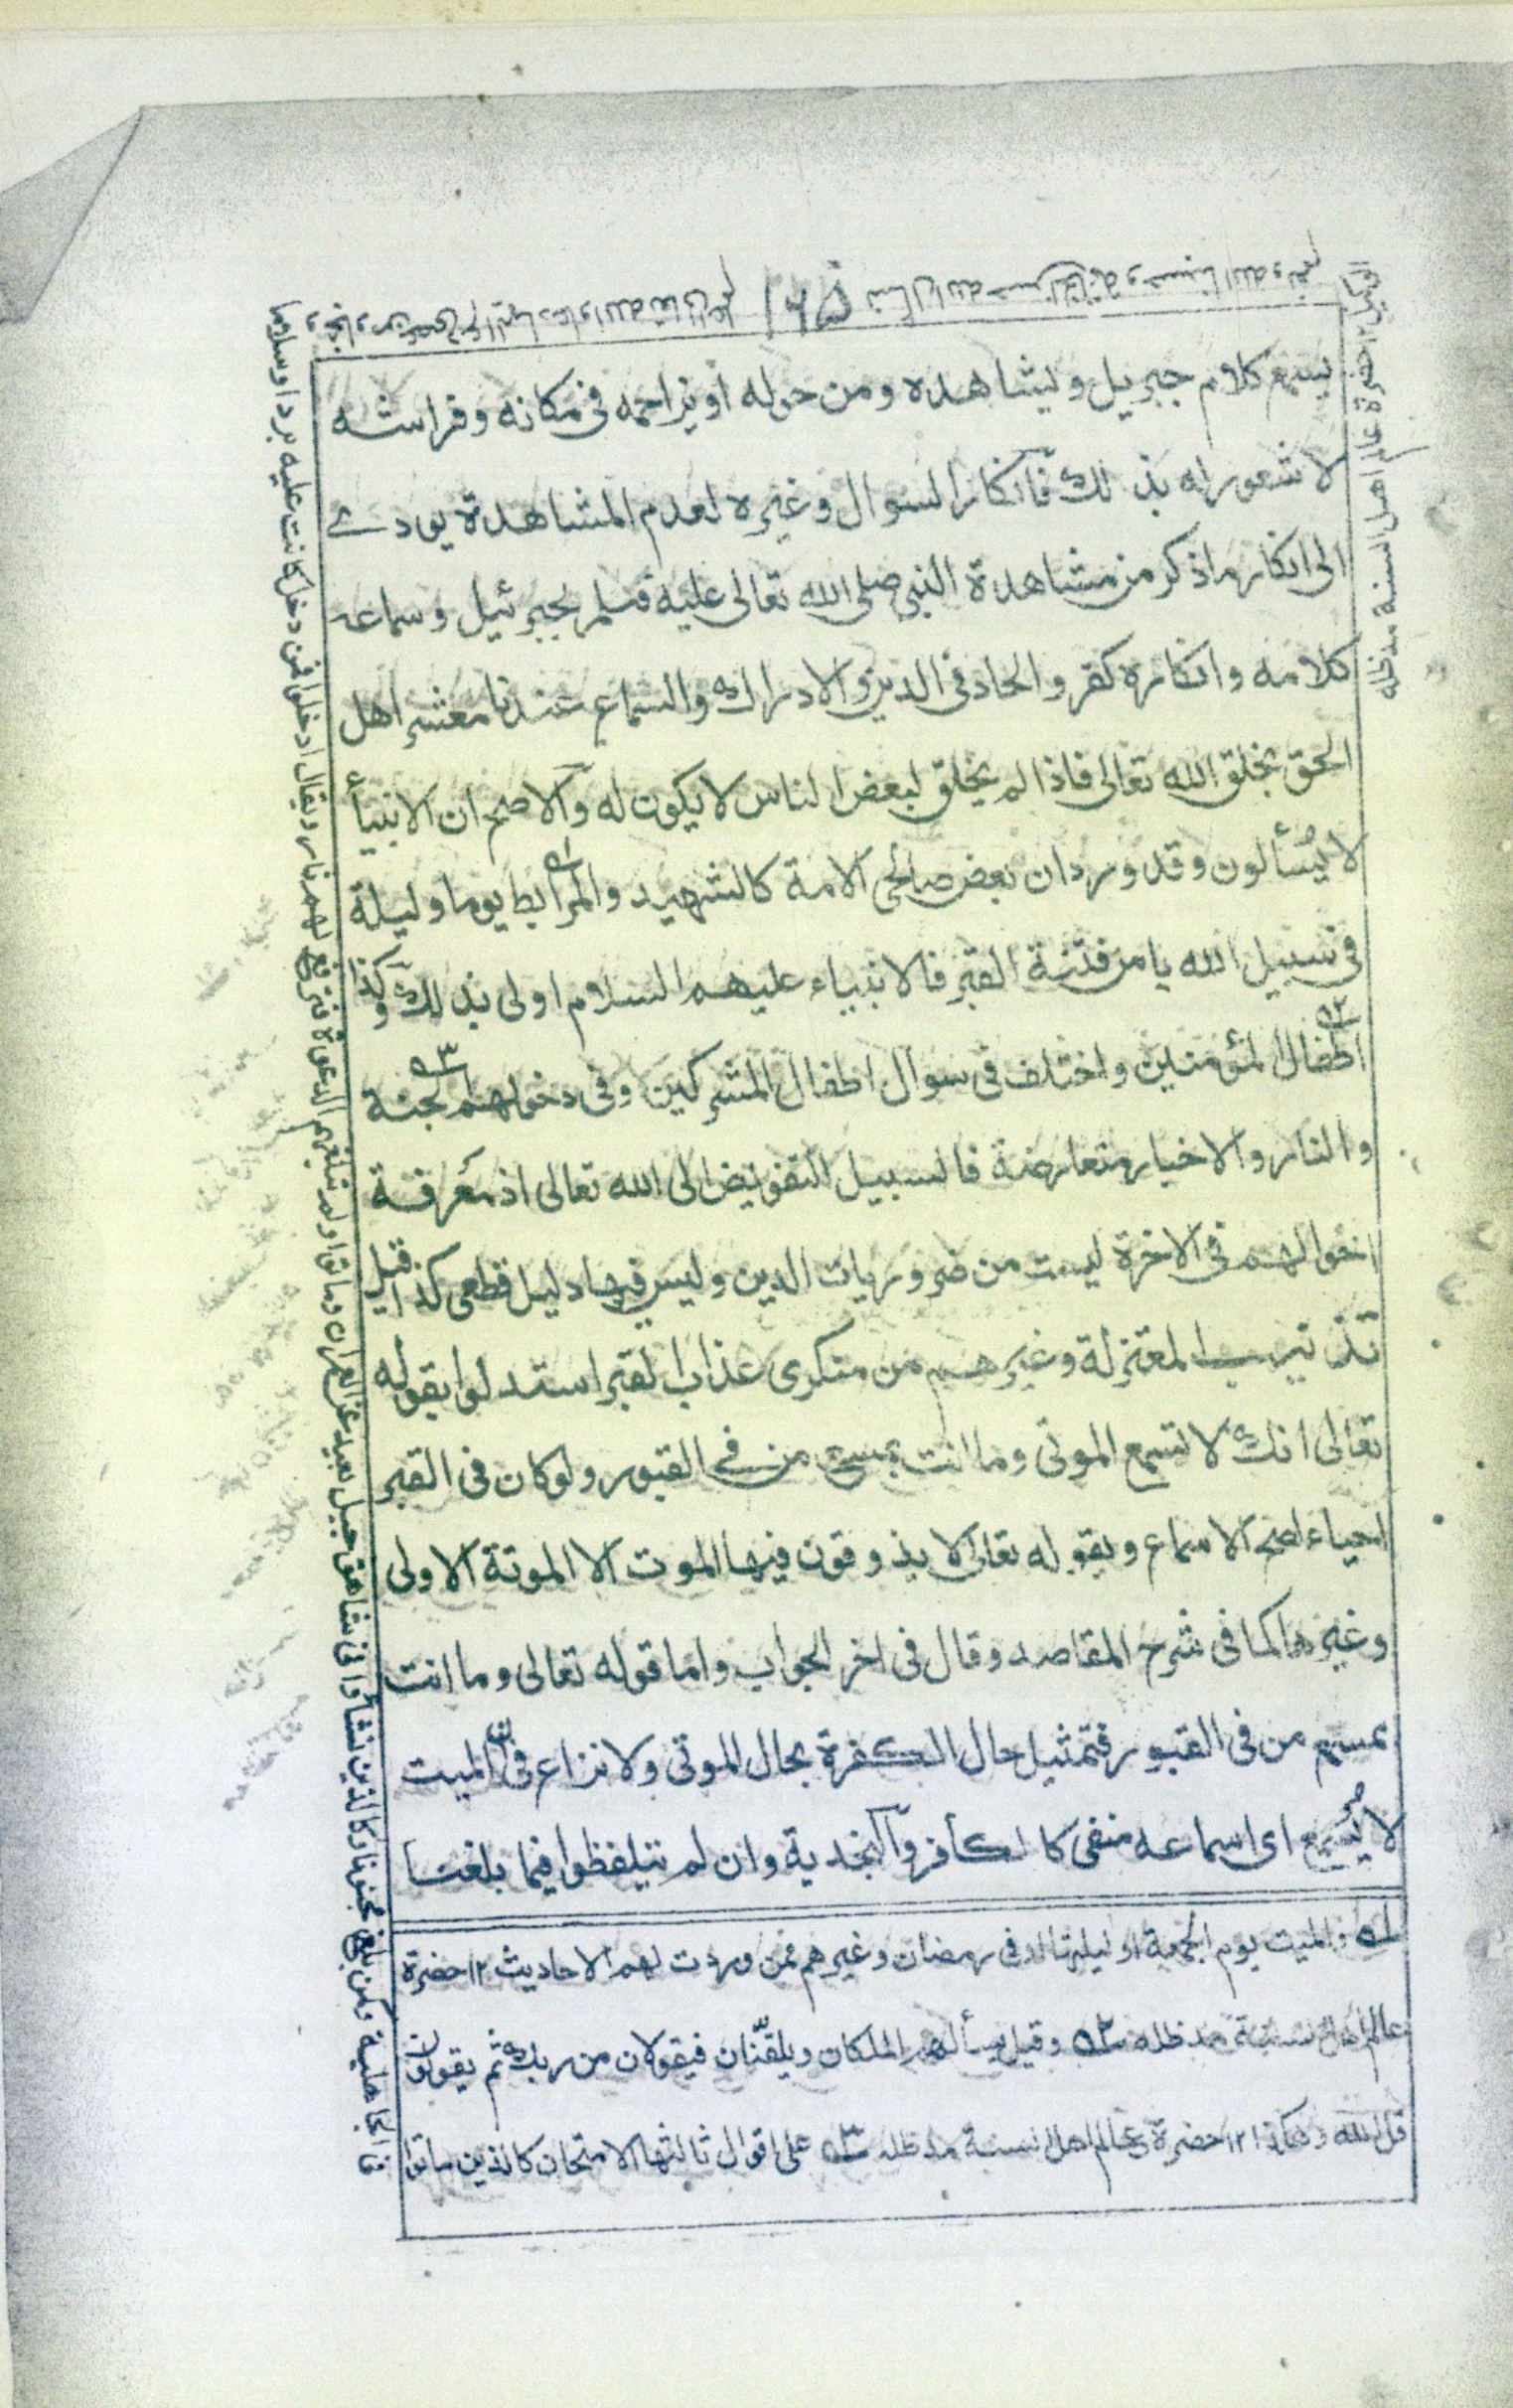 يسمع كلام جبريل ويشاهده ومن حوله او يزاحمه في مكانه وفراشه
لا شعور له بذلك فانكار السوال وغيره لعدم المشاهدة يودے
الى انكار ماذكر من مشاهدة النبي صلى الله تعالى عليه وسلم لجبرئيل وسماعه
كلامه وانكاره كفر والحاد في الدين والادراك والسماع عندنا معشر اهل
الحق بخلق الله تعالى فاذا لم يخلق لبعض الناس لا يكون له والاصح ان الانبيأ
لا يُسألون وقد ورد ان بعض صالحى الامة كالشهيد والمرابط ٥١ يوما وليلة
في سبيل الله يامن فتنة القبر فالانبياء عليهم السلام اولى بذلك وكذا
اطفال ٥٢ المؤمنين واختلف في سوال اطفال المشركين وفى دخولهم ٥٣ الجنة
والنار والاخبار متعارضة فالسبيل التفويض الى الله تعالى اذ معرفة
احوالهم في الاخرة ليست من ضروريات الدين وليس فيها دليل قطعى كذا قيل
تذنيب المعتزلة وغيرهم من منكرى عذاب القبر استدلوا بقوله
تعالى انك لا تسمع الموتى وما انت بمسمع من في القبور ولو كان في القبر
احياء لصح الاسماع وبقوله تعالى لا يذوقون فيها الموت الا الموتة الاولى
وغيرها كما في شرح المقاصد وقال في اخر الجواب واما قوله تعالى وما انت
بمسمع من في القبور فتمثيل حال الكفرة بحال الموتى ولا نزاع في ان الميت
لا يُسمع اى اسماعه منفى كالكافر والنجدية وان لم يتلفظوا فيما بلغنا
٥١ والميت يوم الجمعة او ليلتها او في رمضان وغيرهم ممن وردت لهم الاحاديث ١٢ حضرة
عالم اهل السنة مد ظله ٥٢ وقيل يسألهم الملكان ويلقّنان فيقولان من ربك ثم يقولان
قل الله وهكذا ١٢ حضرة عالم اهل السنة مد ظله ٥٣ على اقوال ثالثها الامتحان كالذين ماتوا
في الجاهلية ولمن بلغ مجنونا وكالذين نشأوا في شاهق جبل بعيد عن العمران وماتوا ولم تبلغهم الدعوة فترفع لهم نار ويقال ادخلوا فمن دخل كانت عليه بردا وسلاما
حضرة عالم اهل السنة مد ظله